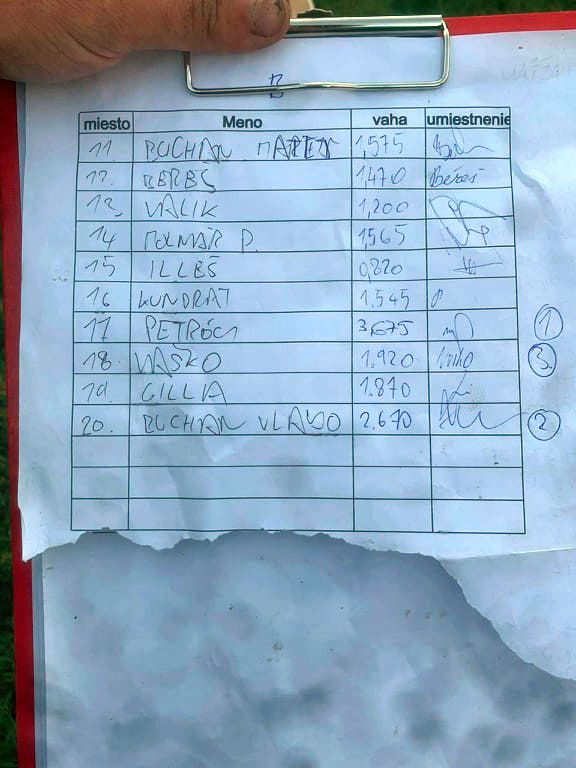 B
miesto Meno vaha umiestnenie
11. BUCHAN MAREK 1,575
12. BEREŠ 1,470 Bereš
13. VALIK 1,200
14 MOLNÁR P. 1,565
15 ILLEŠ 0,820
16 KUNDRAT 1.545
17 PETRÓCI 3,675 1.
18. VAŠKO 1.920 3.
19. GILLIA 1.870
20. BUCHAN VLADO 2.670 2